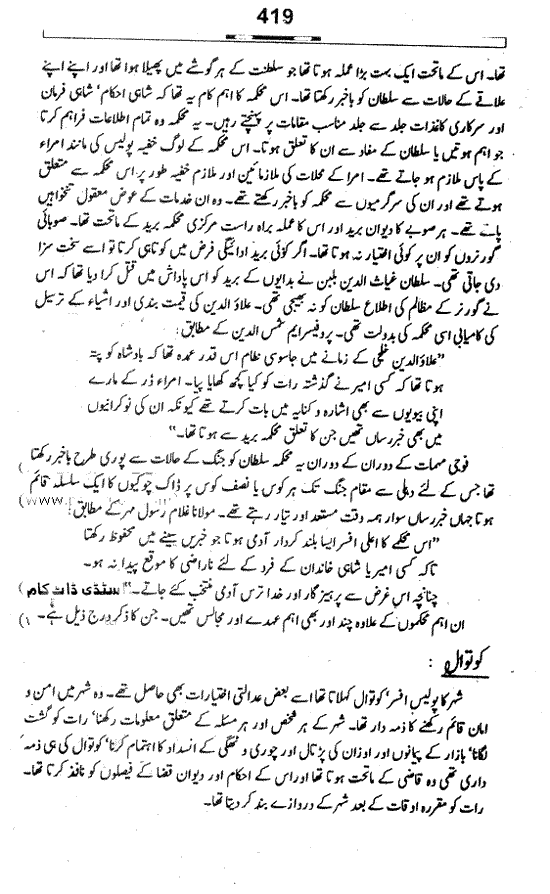 419
تھا۔ اس کے ماتحت ایک بہت بڑا عملہ ہوتا تھا جو سلطنت کے ہر گوشے میں پھیلا ہوا تھا اور اپنے اپنے
علاقے کے حالات سے سلطان کو باخبر رکھتا تھا۔ اس محکمہ کا اہم کام یہ تھا کہ شاہی احکام' شاہی فرمان
اور سرکاری کاغذات جلد سے جلد مناسب مقامات پر پہنچتے رہیں۔ یہ محکمہ وہ تمام اطلاعات فراہم کرتا
جو اہم ہوتیں یا سلطان کے مفاد سے ان کا تعلق ہوتا۔ اس محکمہ کے لوگ خفیہ پولیس کی مانند امراء
کے پاس ملازم ہو جاتے تھے۔ امرا کے محلات کی ملازمائیں اور ملازم خفیہ طور پر اس محکمہ سے متعلق
ہوتے تھے اور ان کی سرگرمیوں سے محکمہ کو باخبر رکھتے تھے۔ وہ ان خدمات کے عوض معقول تنخواہیں
پاتے تھے۔ ہر صوبے کا دیوان برید اور اس کا عملہ براہ راست مرکزی محکمہ برید کے ماتحت تھا۔ صوبائی
گورنروں کو ان پر کوئی اختیار نہ ہوتا تھا۔ اگر کوئی برید ادائیگی فرض میں کوتاہی کرتا تو اسے سخت سزا
دی جاتی تھی۔ سلطان غیاث الدین بلبن نے بدایوں کے برید کو اس پاداش میں قتل کرا دیا تھا کہ اس
نے گورنر کے مظالم کی اطلاع سلطان کو نہ بھیجی تھی۔ علاؤ الدین کی قیمت بندی اور اشیاء کے ترسیل
کی کامیابی اسی محکمہ کی بدولت تھی۔ پروفیسر ایم شمس الدین کے مطابق:
"علاؤالدین خلجی کے زمانے میں جاسوسی نظام اس قدر عمدہ تھا کہ بادشاہ کو پتہ
ہوتا تھا کہ کسی امیر نے گذشتہ رات کو کیا کچھ کھایا پیا۔ امراء ڈر کے مارے
اپنی بیویوں سے بھی اشارہ و کنایہ میں بات کرتے تھے کیونکہ ان کی نوکرانیوں
میں بھی خبر رساں تھیں جن کا تعلق محکمہ برید سے ہوتا تھا۔"
فوجی مہمات کے دوران کے دوران یہ محکمہ سلطان کو جنگ کے حالات سے پوری طرح باخبر رکھتا
تھا جس کے لئے دہلی سے مقام جنگ تک ہر کوس یا نصف کوس پر ڈاک چوکیوں کا ایک سلسلہ قائم
ہوتا جہاں خبر رساں سوار ہمہ وقت مستعد اور تیار رہتے تھے۔ مولانا غلام رسول مہر کے مطابق:
(www.
"اس محکمے کا اعلیٰ افسر ایسا بلند کردار آدمی ہوتا جو خبریں سینے میں محفوظ رکھتا
تاکہ کسی امیر یا شاہی خاندان کے فرد کے لئے ناراضی کا موقع پیدا نہ ہو۔
چنانچہ اس غرض سے پرہیز گار اور خدا ترس آدمی منتخب کئے جاتے۔"
سٹڈی ڈاٹ کام
ان اہم محکموں کے علاوہ چند اور بھی اہم عہدے اور مجالس تھیں۔ جن کا ذکر درج ذیل ہے۔
کوتوال :
شہر کا پولیس افسر' کوتوال کہلاتا تھا اسے بعض عدالتی اختیارات بھی حاصل تھے۔ وہ شہر میں امن و
امان قائم رکھنے کا ذمہ دار تھا۔ شہر کے ہر شخص اور ہر مسئلہ کے متعلق معلومات رکھنا' رات کو گشت
لگانا' بازار کے پیمانوں اور اوزان کی پڑتال اور چوری و ٹھگی کے انسداد کا اہتمام کرنا' کوتوال کی ہی ذمہ
داری تھی وہ قاضی کے ماتحت ہوتا تھا اور اس کے احکام اور دیوان قضا کے فیصلوں کو نافذ کرتا تھا۔
رات کو مقررہ اوقات کے بعد شہر کے دروازے بند کر دیتا تھا۔